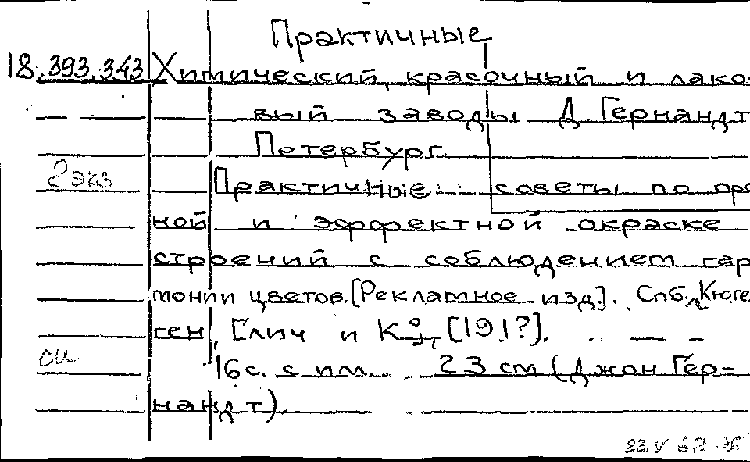 Практичные
18.393.343 Химический, красочный и лако-
вый заводы Д Гернандт
Петербург.
2 экз Практичные советы по проч
ной и эффектной окраске
строений с соблюдением гар
монии цветов. [Рекламное изд]. Спб, Кюге
ген, Глич и К° [191?].
16 с. с ил. 23 см (Джон Гер-
нандт).